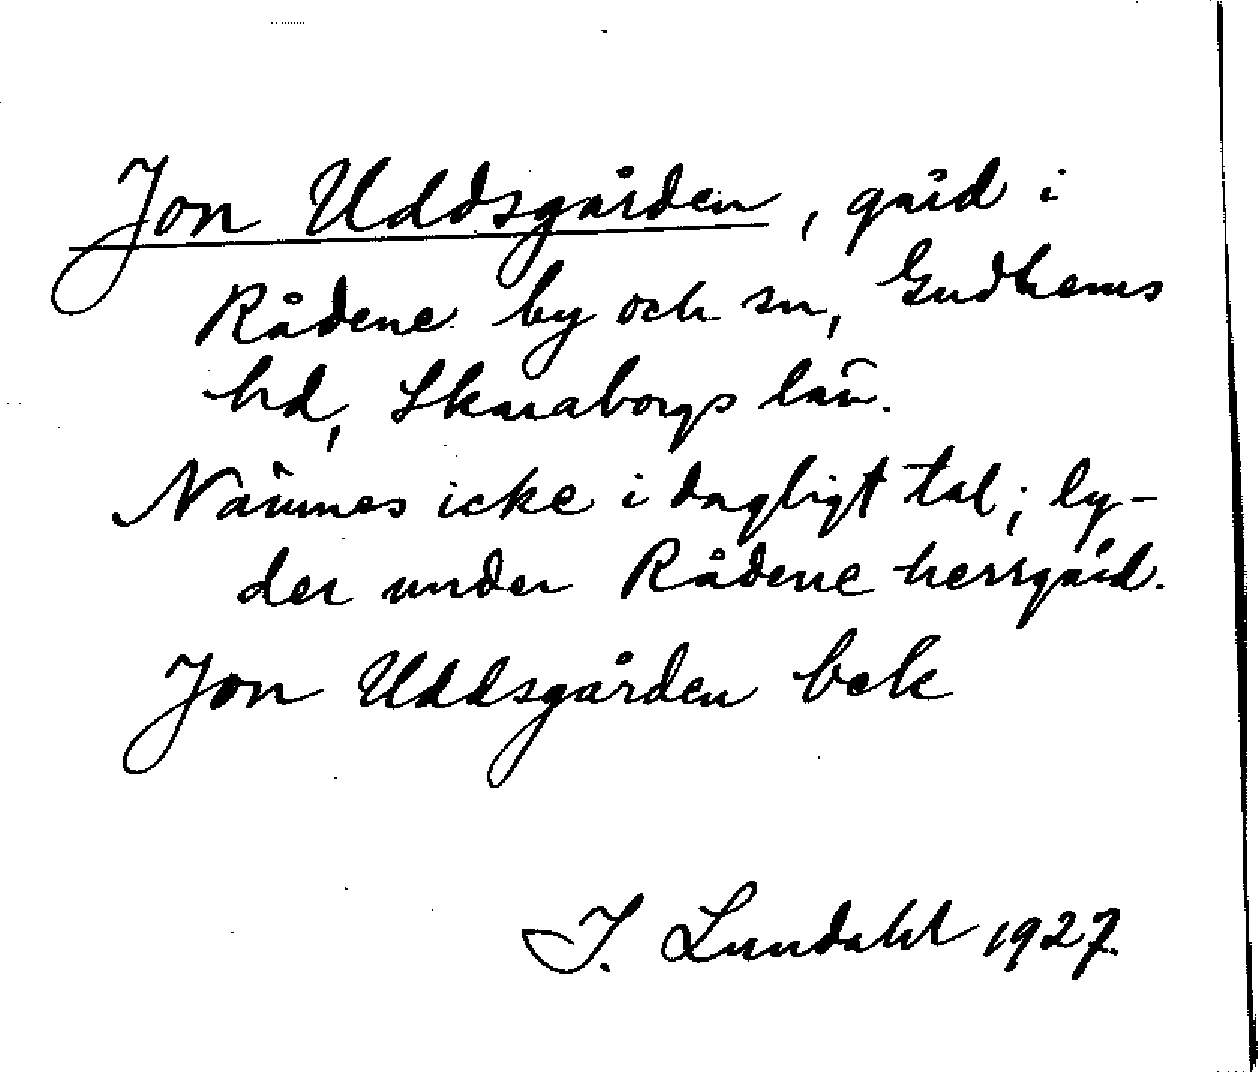 Jon Uddsgården, gård i
Rådene by och sn, Gudhems
hd, Skaraborgs län.
Nämnes icke i dagligt tal; ly-
der under Rådene herrgård.
Jon Uddsgården bek
I. Lundahl 1927.